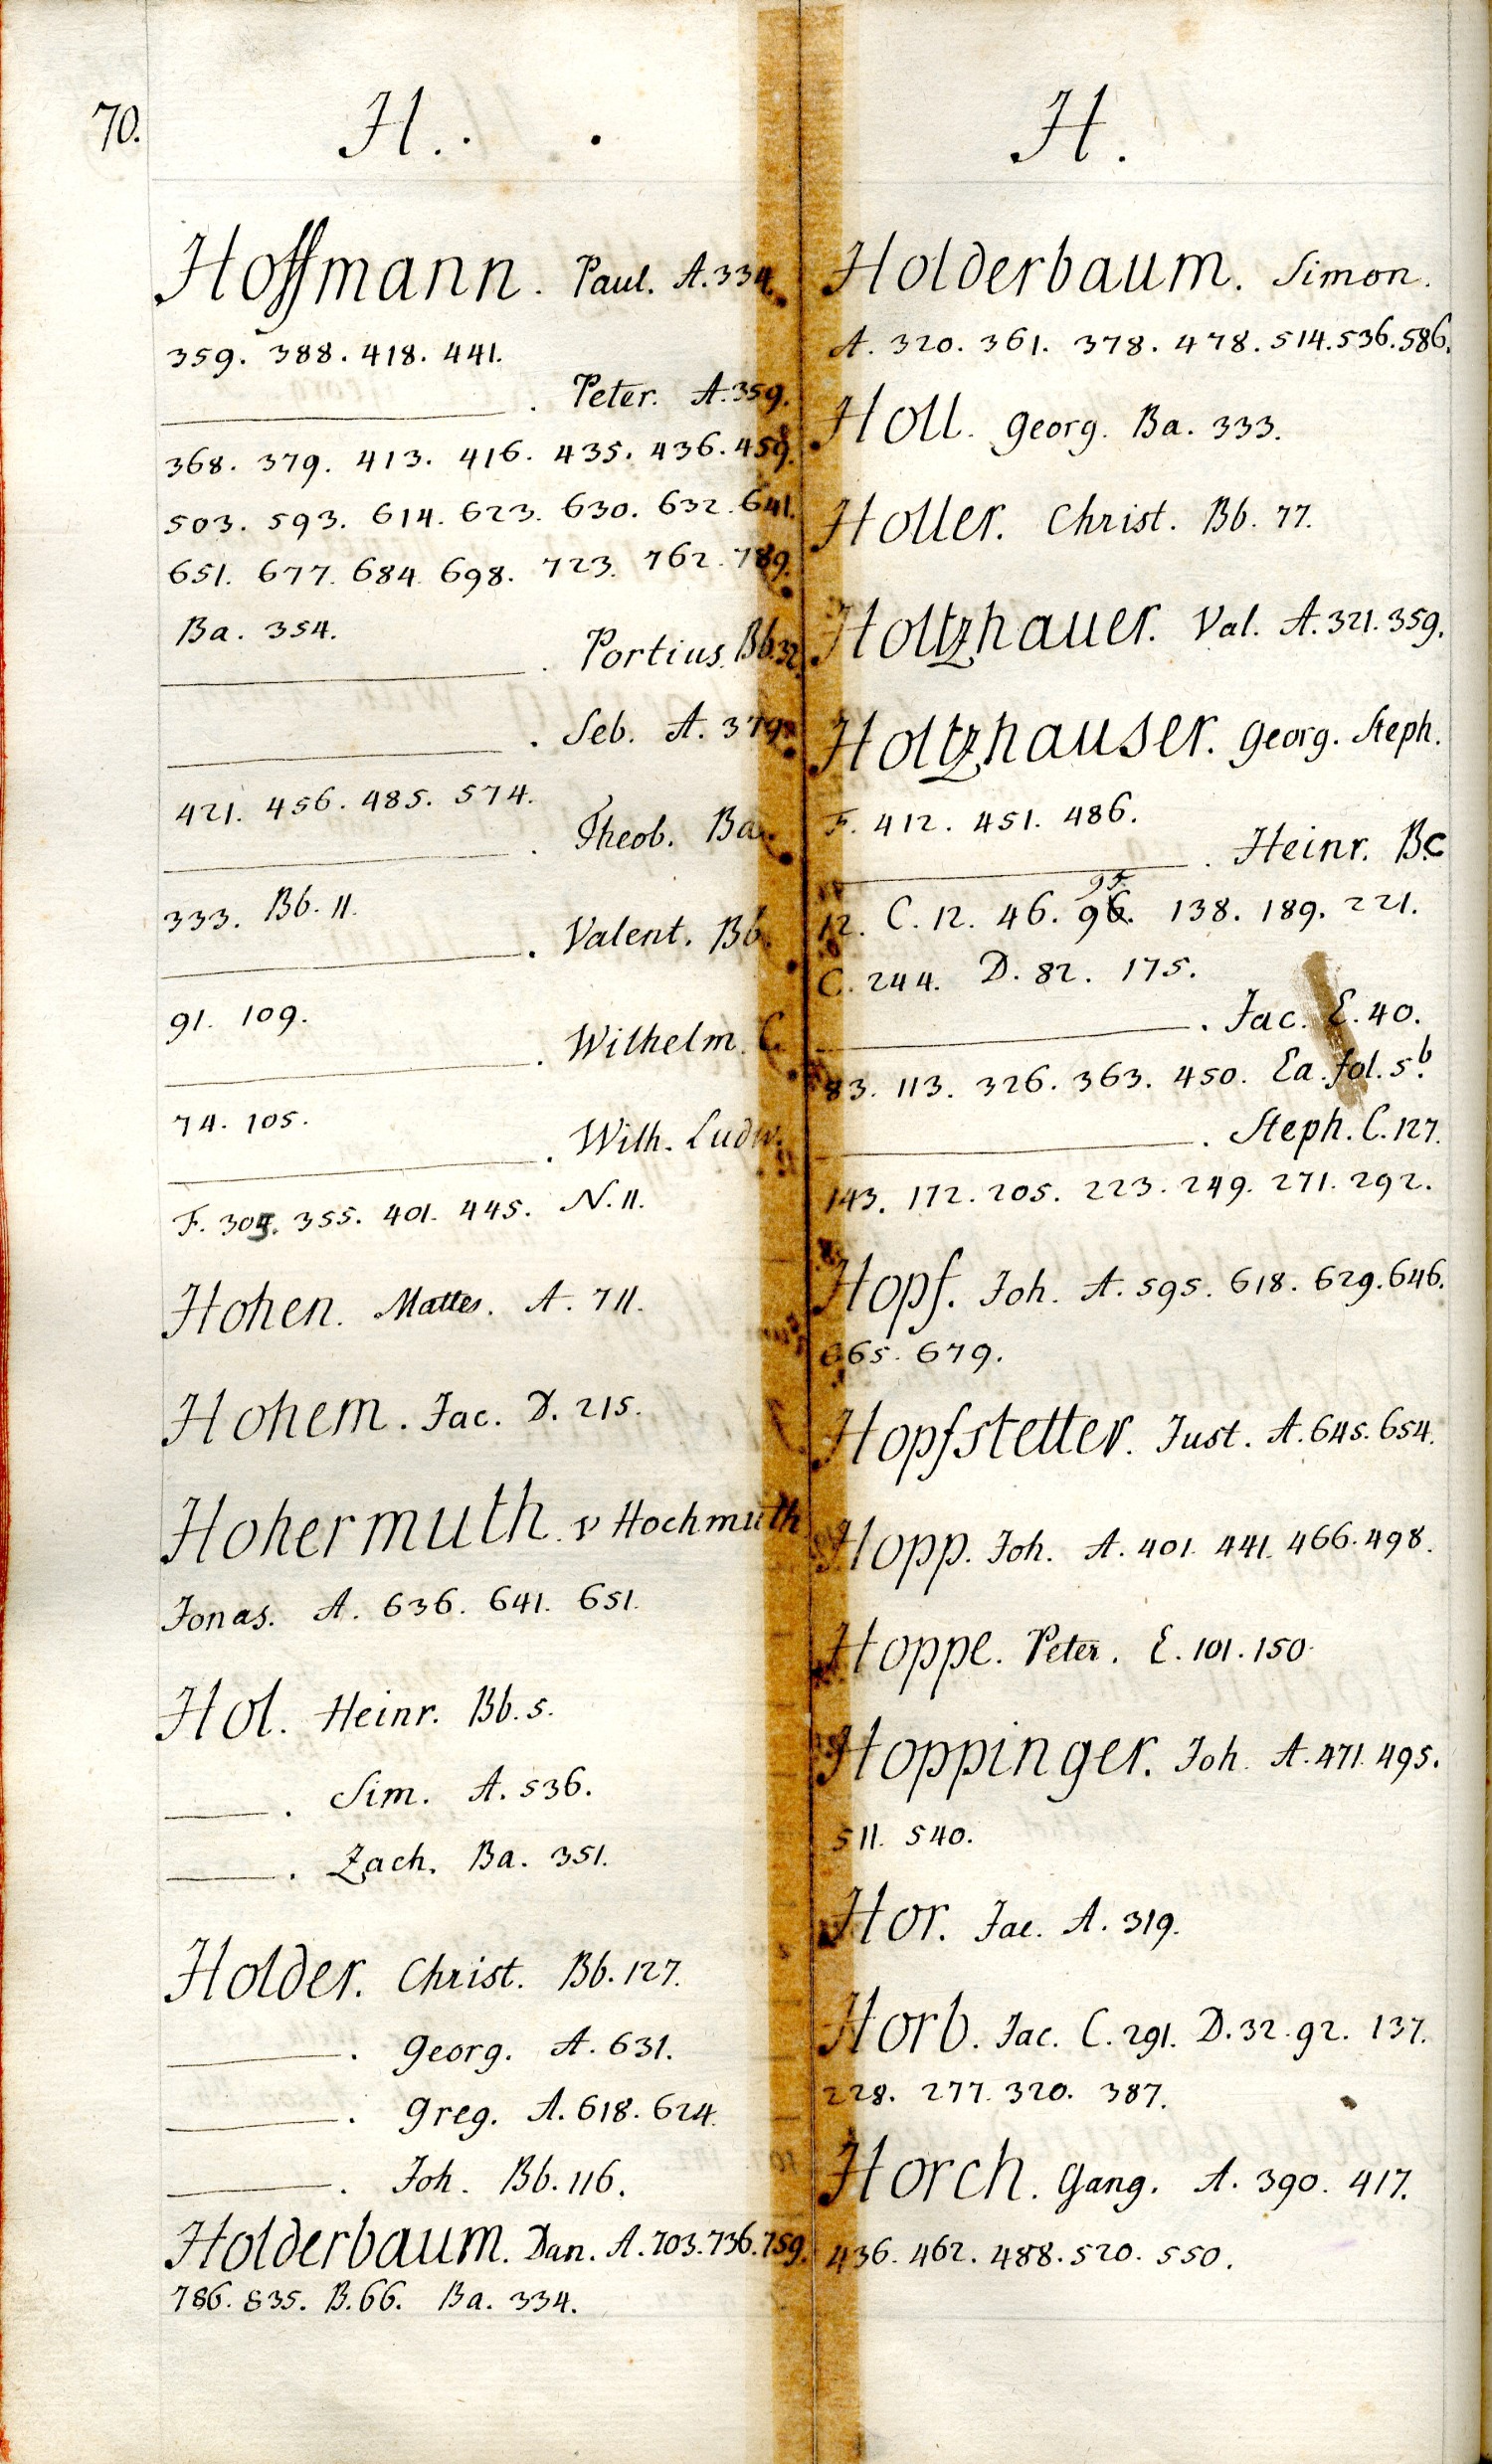 70.
H.
Hoffmann. Paul. A. 334.
359. 388. 418. 441.
———. Peter. A. 359.
368. 379. 413. 416. 435. 436. 459.
503. 593. 614. 623. 630. 632. 641.
651. 677. 684. 698. 723. 762. 789.
Ba. 354.
———. Portius. Bb. 32.
———. Seb. A. 379.
421. 456. 485. 574.
———. Theob. Ba.
333. Bb. 11.
———. Valent. Bb.
91. 109.
———. Wilhelm. C.
74. 105.
———. Wilh. Ludw.
F. 305. 355. 401. 445. N. 11.
Hohen. Mattes. A. 711.
Hohem. Jac. D. 215.
Hohermuth. v Hochmuth
Jonas. A. 636. 641. 651.
Hol. Heinr. Bb. 5.
———. Sim. A. 536.
———. Zach. Ba. 351.
Holder. Christ. Bb. 127.
———. Georg. A. 631.
———. Greg. A. 618. 624.
———. Joh. Bb. 116.
Holderbaum. Dan. A. 703. 736. 759.
786. 835. B. 66. Ba. 334.
H.
Holderbaum. Simon.
A. 320. 361. 378. 478. 514. 536. 586.
Holl. Georg. Ba. 333.
Holler. Christ. Bb. 77.
Holtzhauer. Val. A. 321. 359.
Holtzhauser. Georg. Steph.
F. 412. 451. 486.
———. Heinr. Bc
12. C. 12. 46. 96. 138. 189. 221.
C. 244. D. 82. 175.
———. Jac. E. 40.
83. 113. 326. 363. 450. Ea. fol. 5.b
———. Steph. C. 127.
143. 172. 205. 223. 249. 271. 292.
Hopf. Joh. A. 595. 618. 629. 646.
665. 679.
Hopfstetter. Just. A. 645. 654.
Hopp. Joh. A. 401. 441. 466. 498.
Hoppe. Peter. E. 101. 150.
Hoppinger. Joh. A. 471. 495.
511. 540.
Hor. Jac. A. 319.
Horb. Jac. C. 291. D. 32. 92. 137.
228. 277. 320. 387.
Horch. Gang. A. 390. 417.
436. 462. 488. 520. 550.